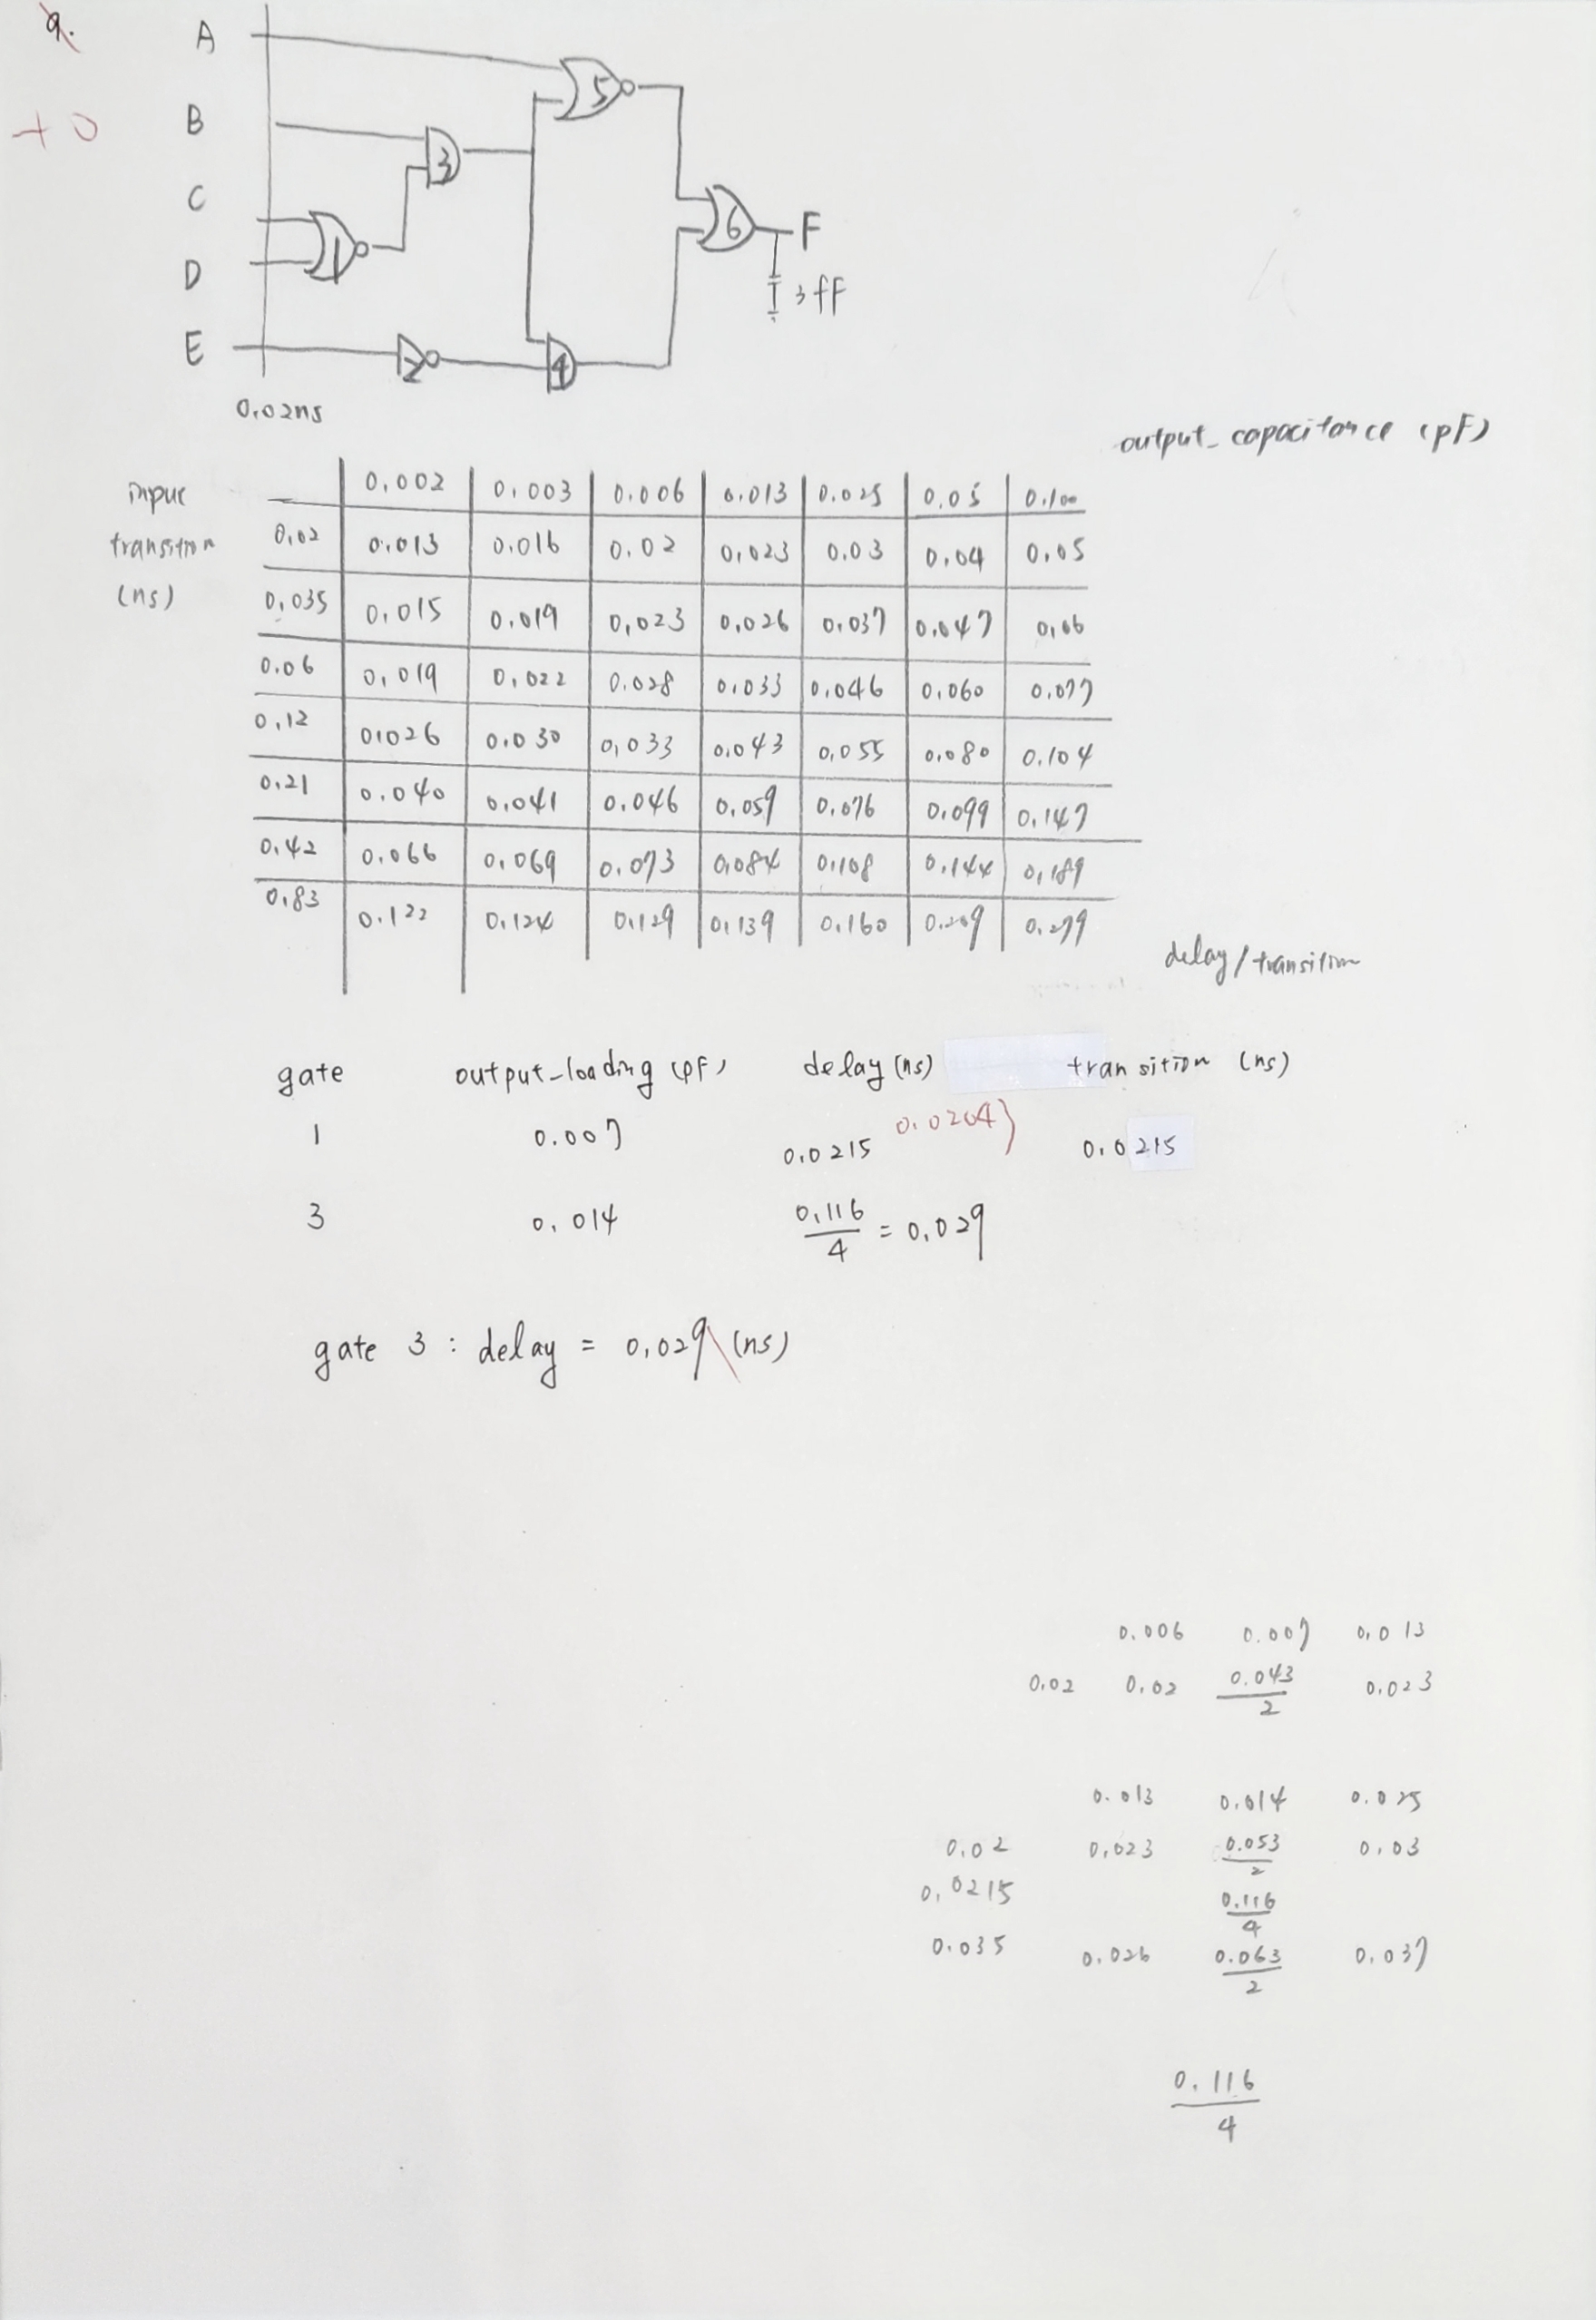 9.
+0
A
B
C
D
E
1
2
3
4
5
6
F
3fF
0.02ns
output_capacitance (pF)
input transition (ns)
0.002 0.003 0.006 0.013 0.025 0.05 0.100
0.02 0.013 0.016 0.02 0.023 0.03 0.04 0.05
0.035 0.015 0.019 0.023 0.026 0.037 0.047 0.06
0.06 0.019 0.022 0.028 0.033 0.046 0.060 0.077
0.12 0.026 0.030 0.033 0.043 0.055 0.080 0.104
0.21 0.040 0.041 0.046 0.059 0.076 0.099 0.147
0.42 0.066 0.069 0.073 0.084 0.108 0.144 0.189
0.83 0.122 0.124 0.129 0.139 0.160 0.209 0.279
delay/transition
gate output-loading (pF) delay (ns) transition (ns)
1 0.007 0.0215 0.0204 0.0215
3 0.014 0.116/4 = 0.029
gate 3 : delay = 0.029 (ns)
0.006 0.007 0.013
0.02 0.02 0.043/2 0.023
0.013 0.014 0.025
0.02 0.023 0.053/2 0.03
0.0215 0.116/4
0.035 0.026 0.063/2 0.037
0.116/4